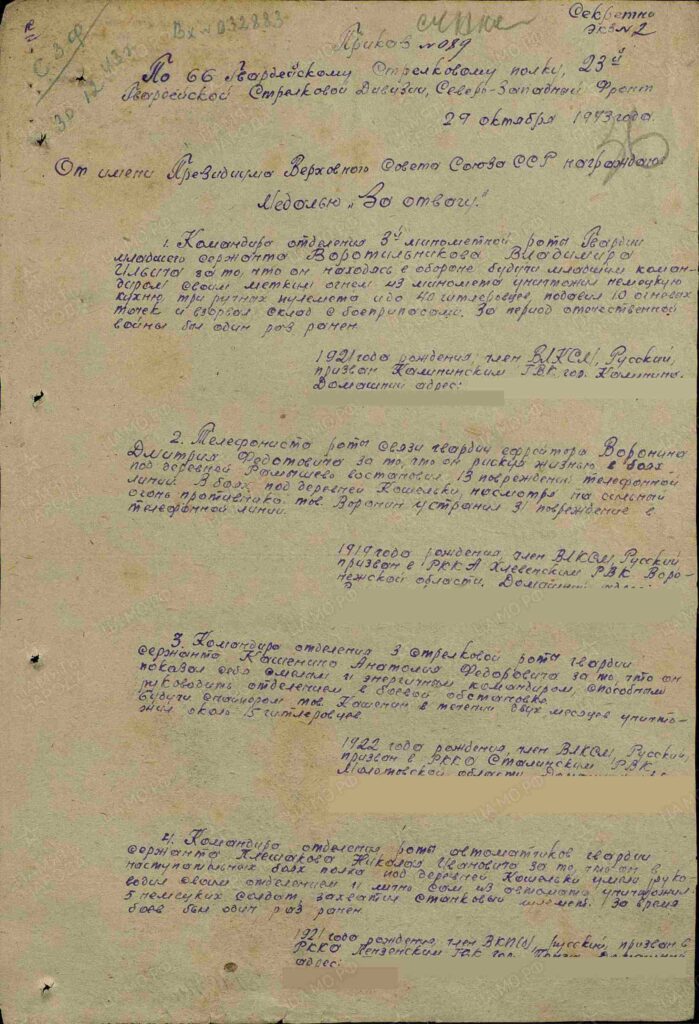 Секретно
Экз №2
Вх №032883
С.З.Ф
30 12 43г
Приказ №089
По 66 Гвардейскому Стрелковому полку, 23й
Гвардейской Стрелковой Дивизии, Северо-Западный Фронт
29 октября 1943 года.
От имени Президиума Верховного Совета Союза ССР награждаю:
Медалью „За отвагу“
1. Командира отделения 3й минометной роты Гвардии
младшего сержанта Воротильникова Владимира
Ильича за то, что он находясь в обороне будучи младшим коман-
диром своим метким огнем из миномета уничтожил немецкую
кухню, три ручных пулемета и до 40 гитлеровцев, подавил 10 огневых
точек и взорвал склад с боеприпасами. За период отечественной
войны был один раз ранен.
1921 года рождения, член ВЛКСМ, Русский,
призван Калининским ГВК гор. Калинина.
Домашний адрес:
2. Телефониста роты связи гвардии ефрейтора Воронина
Дмитрия Федотовича за то, что он рискуя жизнью в боях
под деревней Рамушево востановил 13 повреждений телефонной
линии. В боях под деревней Кошельки, несмотря на сильный
огонь противника тов. Воронин устранил 31 повреждение в
телефонной линии.
1919 года рождения, член ВЛКСМ, Русский
призван в РККА Хлевенским РВК Воро-
нежской области. Домашний
3. Командира отделения 3 стрелковой роты гвардии
сержанта Кашенина Анатолия Федоровича за то, что он
показал себя смелым и энергичным командиром, способным
руководить отделением в боевой обстановке.
Будучи снайпером тов. Кашенин в течении двух месяцев уничто-
жил около 15 гитлеровцев.
1922 года рождения, член ВЛКСМ, Русский,
призван в РККА Сталинским РВК,
Молотовской области
4. Командира отделения роты автоматчиков гвардии
сержанта Плешакова Николая Ивановича за то, что он в
наступательных боях полка под деревней Кошельки умело руко-
водил своим отделением и лично сам из автомата уничтожил
5 немецких солдат, захватил станковый пулемет. За время
боев был один раз ранен.
1921 года рождения, член ВКП(б), русский, призван в
РККА Пензенским ГВК гор. Пенза
адрес: